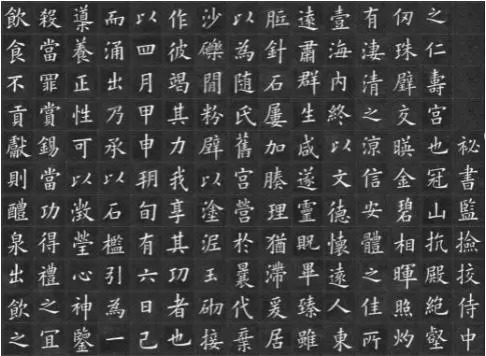 祕書監撿挍侍中
之仁壽宮也冠山抗殿絕壑
仞珠璧交暎金碧相暉照灼
有淒清之涼信安體之佳所
壹海內終以文德懷遠人東
遠肅群生咸遂靈貺畢臻雖
胝針石屢加腠理猶滯爰居
以為隨氏舊宮營於曩代棄
沙礫間粉壁以塗泥玉砌接
作彼竭其力我享其功者也
以四月甲申朔旬有六日己
而涌出乃承以石檻引為一
導養正性可以澂瑩心神鑒
殺當罪賞錫當功得禮之宜
飲食不貢獻則醴泉出飲之